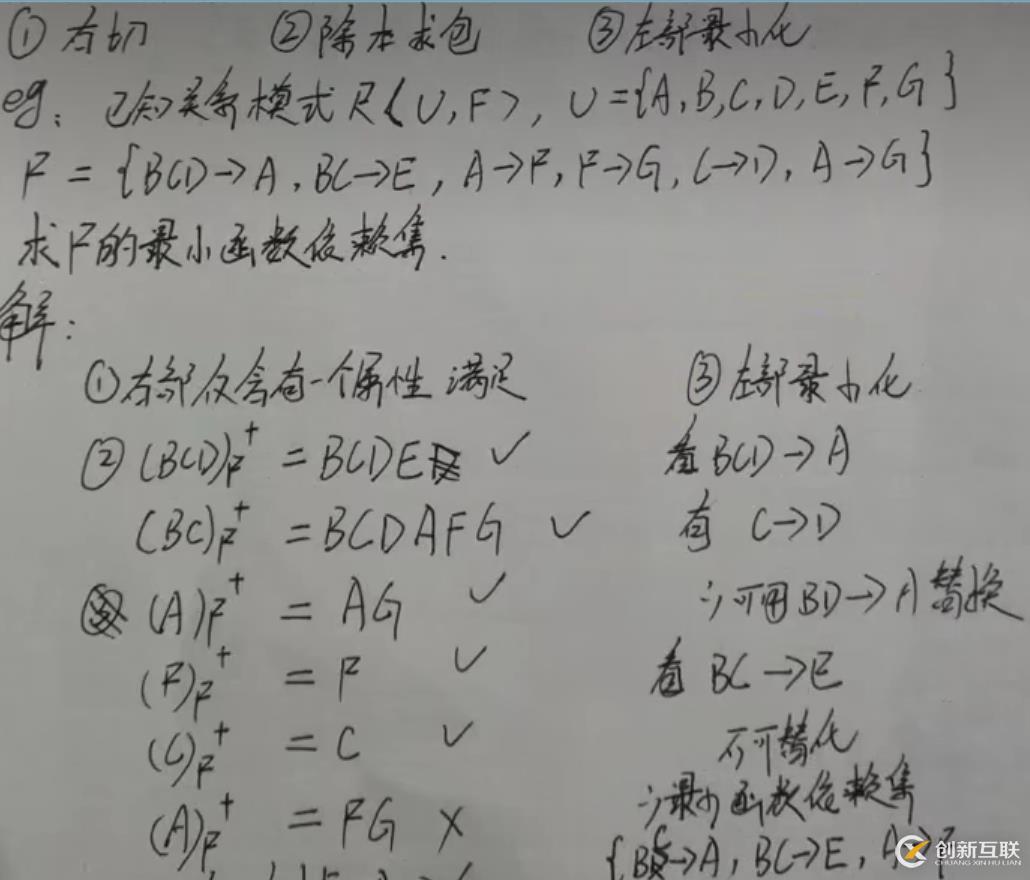 ① 右切 ②除本求包 ③左部最小化
eg: 已知关系模式 R<U,F>, U={A,B,C,D,E,F,G}
F={BCD→A, BC→E, A→F, F→G, C→D, A→G}
求F的最小函数依赖集.
解:
①右部仅含有一个属性 满足
② (BCD)F+ = BCDE ✓
(BC)F+ = BCDAFG ✓
(A)F+ = AG ✓
(F)F+ = F ✓
(C)F+ = C ✓
(A)F+ = FG ×
③左部最小化
看 BCD→A
有 C→D
∴可用BD→A替换
看 BC→E
不可替化
∴最小函数依赖集
{BC→A, BC→E, A→F
创新互联
CHUANG XIN HU LIAN